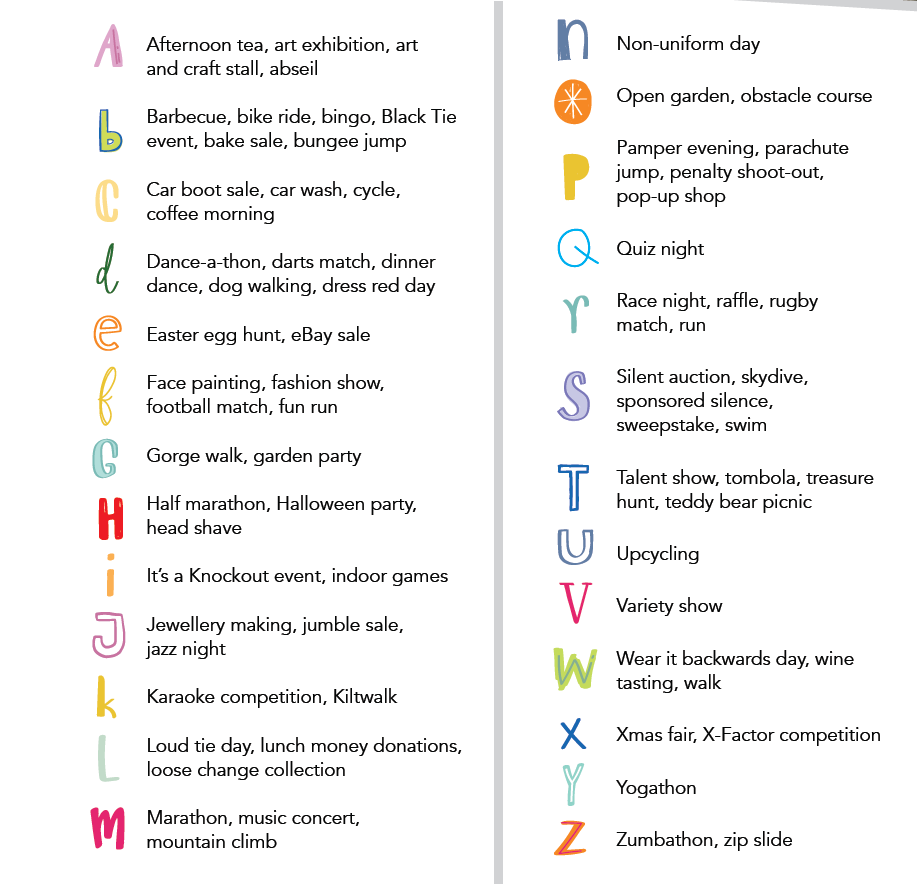 A
Afternoon tea, art exhibition, art
and craft stall, abseil
b
Barbecue, bike ride, bingo, Black Tie
event, bake sale, bungee jump
C
Car boot sale, car wash, cycle,
coffee morning
d
Dance-a-thon, darts match, dinner
dance, dog walking, dress red day
e
Easter egg hunt, eBay sale
f
Face painting, fashion show,
football match, fun run
G
Gorge walk, garden party
H
Half marathon, Halloween party,
head shave
i
It's a Knockout event, indoor games
J
Jewellery making, jumble sale,
jazz night
k
Karaoke competition, Kiltwalk
L
Loud tie day, lunch money donations,
loose change collection
m
Marathon, music concert,
mountain climb
n
Non-uniform day
O
Open garden, obstacle course
P
Pamper evening, parachute
jump, penalty shoot-out,
pop-up shop
Q
Quiz night
r
Race night, raffle, rugby
match, run
S
Silent auction, skydive,
sponsored silence,
sweepstake, swim
T
Talent show, tombola, treasure
hunt, teddy bear picnic
U
Upcycling
V
Variety show
W
Wear it backwards day, wine
tasting, walk
X
Xmas fair, X-Factor competition
Y
Yogathon
Z
Zumbathon, zip slide